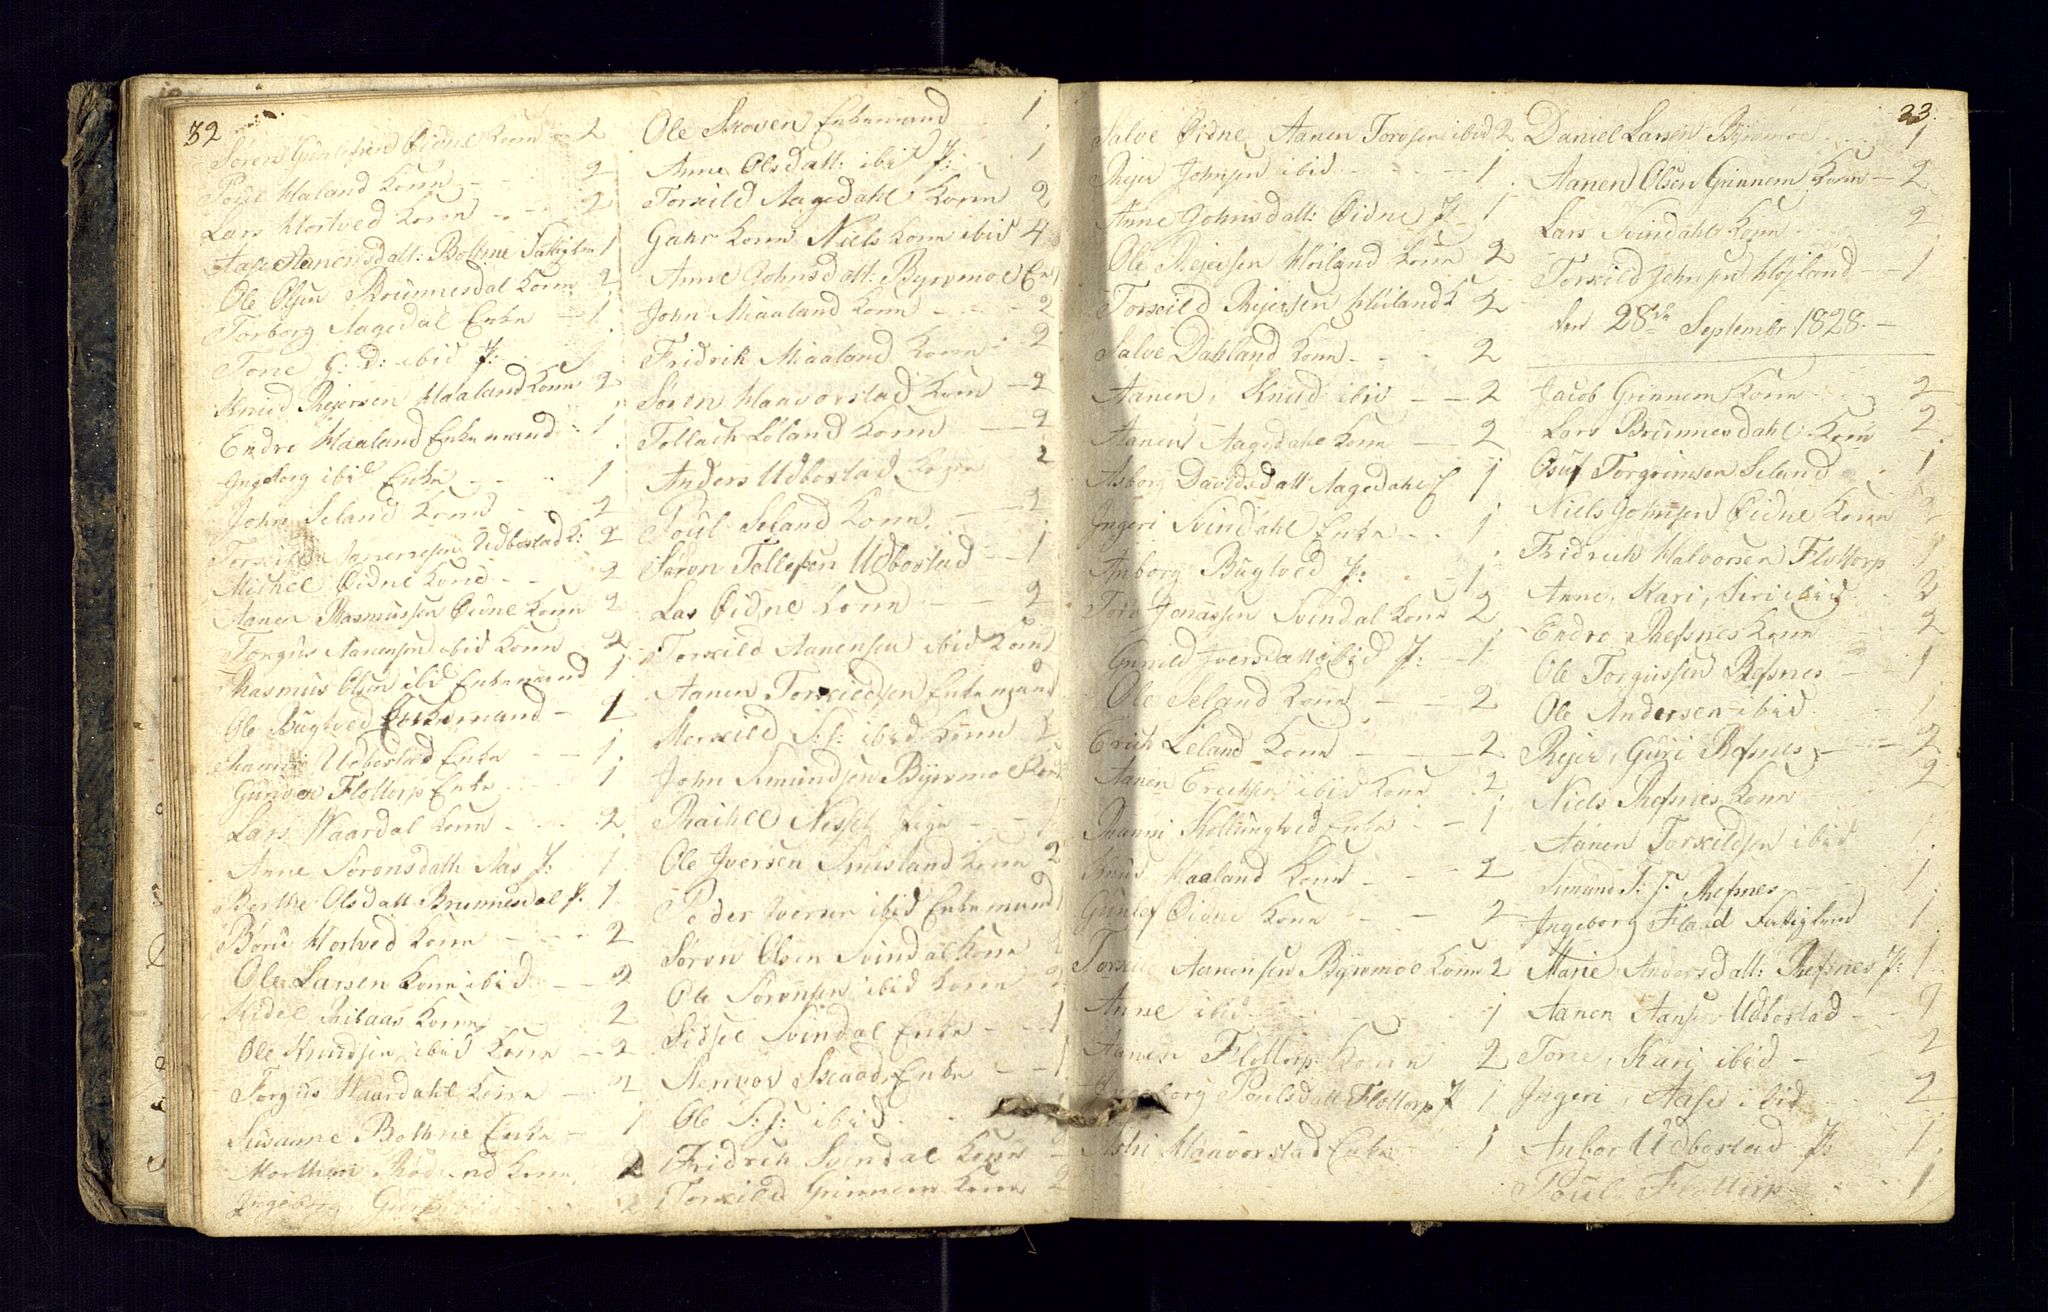 32
Søren Gunlefsen Øidne Konn - 2
Poul Haland Konn - - 2
Lars Hortved Konn - - 2
Aase Aanensdatt: Bothne Fattiglem 1
Ole Olsen Brunnesdal Konn 2
Torborg Aagedal Enke - 1
Tone S: D: ibid P: . . 1
Knud Rejersen Haaland Konn 2
Endre Haaland Enkemand . 1
Ingborg ibid Enke - - . 1
John Seland Konn - - 2
Aanensen Udbostad K: 2
Michel Øidne Konn - - 2
Aanen Rasmussen Øidne Konn 2
Torgus Aanensen ibid Konn 2
Rasmus Olsen ibid Enkemand 1
Ole Bugtved Enkemand - 1
Udbostad Enke - - 1
Flottorp Enke . . 1
Lars Vaardal Konn - - 2
Anne Sørensdatt: Aas P: 1
Berthe Olsdatt Brunnesdal P: 1
Børu Hortved Konn - - - 2
Ole Larsen Konn ibid - - 2
Kidel Ribaas Konn - - 2
Ole Knudsen ibid Konn - - 2
Torgus Vaardahl Konn - 2
Susanne Bothne Enke - 1
Konn 2
Ingeborg
Ole Skoven Enkemand . . 1
Anne Olsdatt: ibid P: . . 1
Torkild Aagedahl Konn 2
Gahr Konn Niels Konn ibid 4
Anne Johnsdatt: Byremoe En
John Miaaland Konn - - - 2
Fridrik Miaaland Konn - 2
Søren Haavorstad Konn - 2
Tollach Løland Konn - - 2
Anders Udbostad Konn 2
Poul Seland Konn. - - 2
Søren Tollefsen Udbostad - - 1
Las Øidne Konn - - 2
Torkild Aanensen ibid Konn
Aanen Torkildsen Enkemand
Merkild S: S: ibid Konn 2
John Simundsen Byremoe
Rachel
Ole Iversen Smisland Konn 2
Peder Iversen ibid Enkemand
Søren Olsen Svindal Konn
Ole Sørensen ibid Konn
Sidsel Svindal Enke - - 1
Stenvor Skaad Enke - - 1
Ole S: S: ibid . .
Fridrik Svindal Konn -
Torkild Grinnem Konn 2
33.
Salve Øidne, Aanen Torosen ibid 2
Rejer Johnsen ibid - - - 1
Anne Johnsdatt: Øidne P - 1
Ole Rejersen Høiland Konn 2
Torkild Rejersen Høiland K 2
Salve Dahland Konn - . - 2
Aanen, Knud ibid - - 2
Aanen Aagedahl Konn - - 2
Asborg Davidsdatt Aagedahl P 1
Ingeri Svindahl Enke . . 1
Anborg Bugtved P: . - 1
Tore Jonassen Svindal Konn 2
Gunild Iversdatt ibid P: - 1
Ole Seland Konn - - 2
Erich Leland Konn - - - 2
Aanen Erichsen ibid Konn 2
Ranni Kollungtved Enke - - 1
Knud Haaland Konn - - - 2
Gunlef Øidne Konn - - 2
Torkild Aanensen Byremoe Konn 2
Anne ibid - - - - 1
Aanen Flottorp Konn 2
Ingeborg Poulsdatt Flottorp P 1
Astri Haavorstad Enke - 1
Daniel Larsen Byremoe . . 1
Aanen Olsen Grinnem Konn - 2
Lars Svindahl Konn . . 2
Torkild Johnsen Høiland - - 1
den 28de September 1828. -
Jacob Grinnem Konn . . 2
Lars Brunnesdahl Konn 2
Osuf Torgrimsen Seland . 1
Niels Johnsen Øidne Konn 2
Fridrich Halvorsen Flottorp 1
Anne, Kari, Siri ibid . . 3
Endre Refsnes Konn - - 2
Ole Torgussen Refsnes - - 1
Ole Andersen ibid . . 1
Rejer, Guri Refsnes - - - 2
Niels Refsnes Konn 2
Aanen Torkildsen ibid 1
Simund T: S: Refsnes - - 1
Ingeborg Flaad Fattiglem 1
Marie Andersdatt: Refsnes P: 1
Aanen Udbostad - -
Tone, Kari ibid - - 2
Ingeri, Aase ibid - - 2
Anbor Udbostad P: 1
Poul Flottorp 1